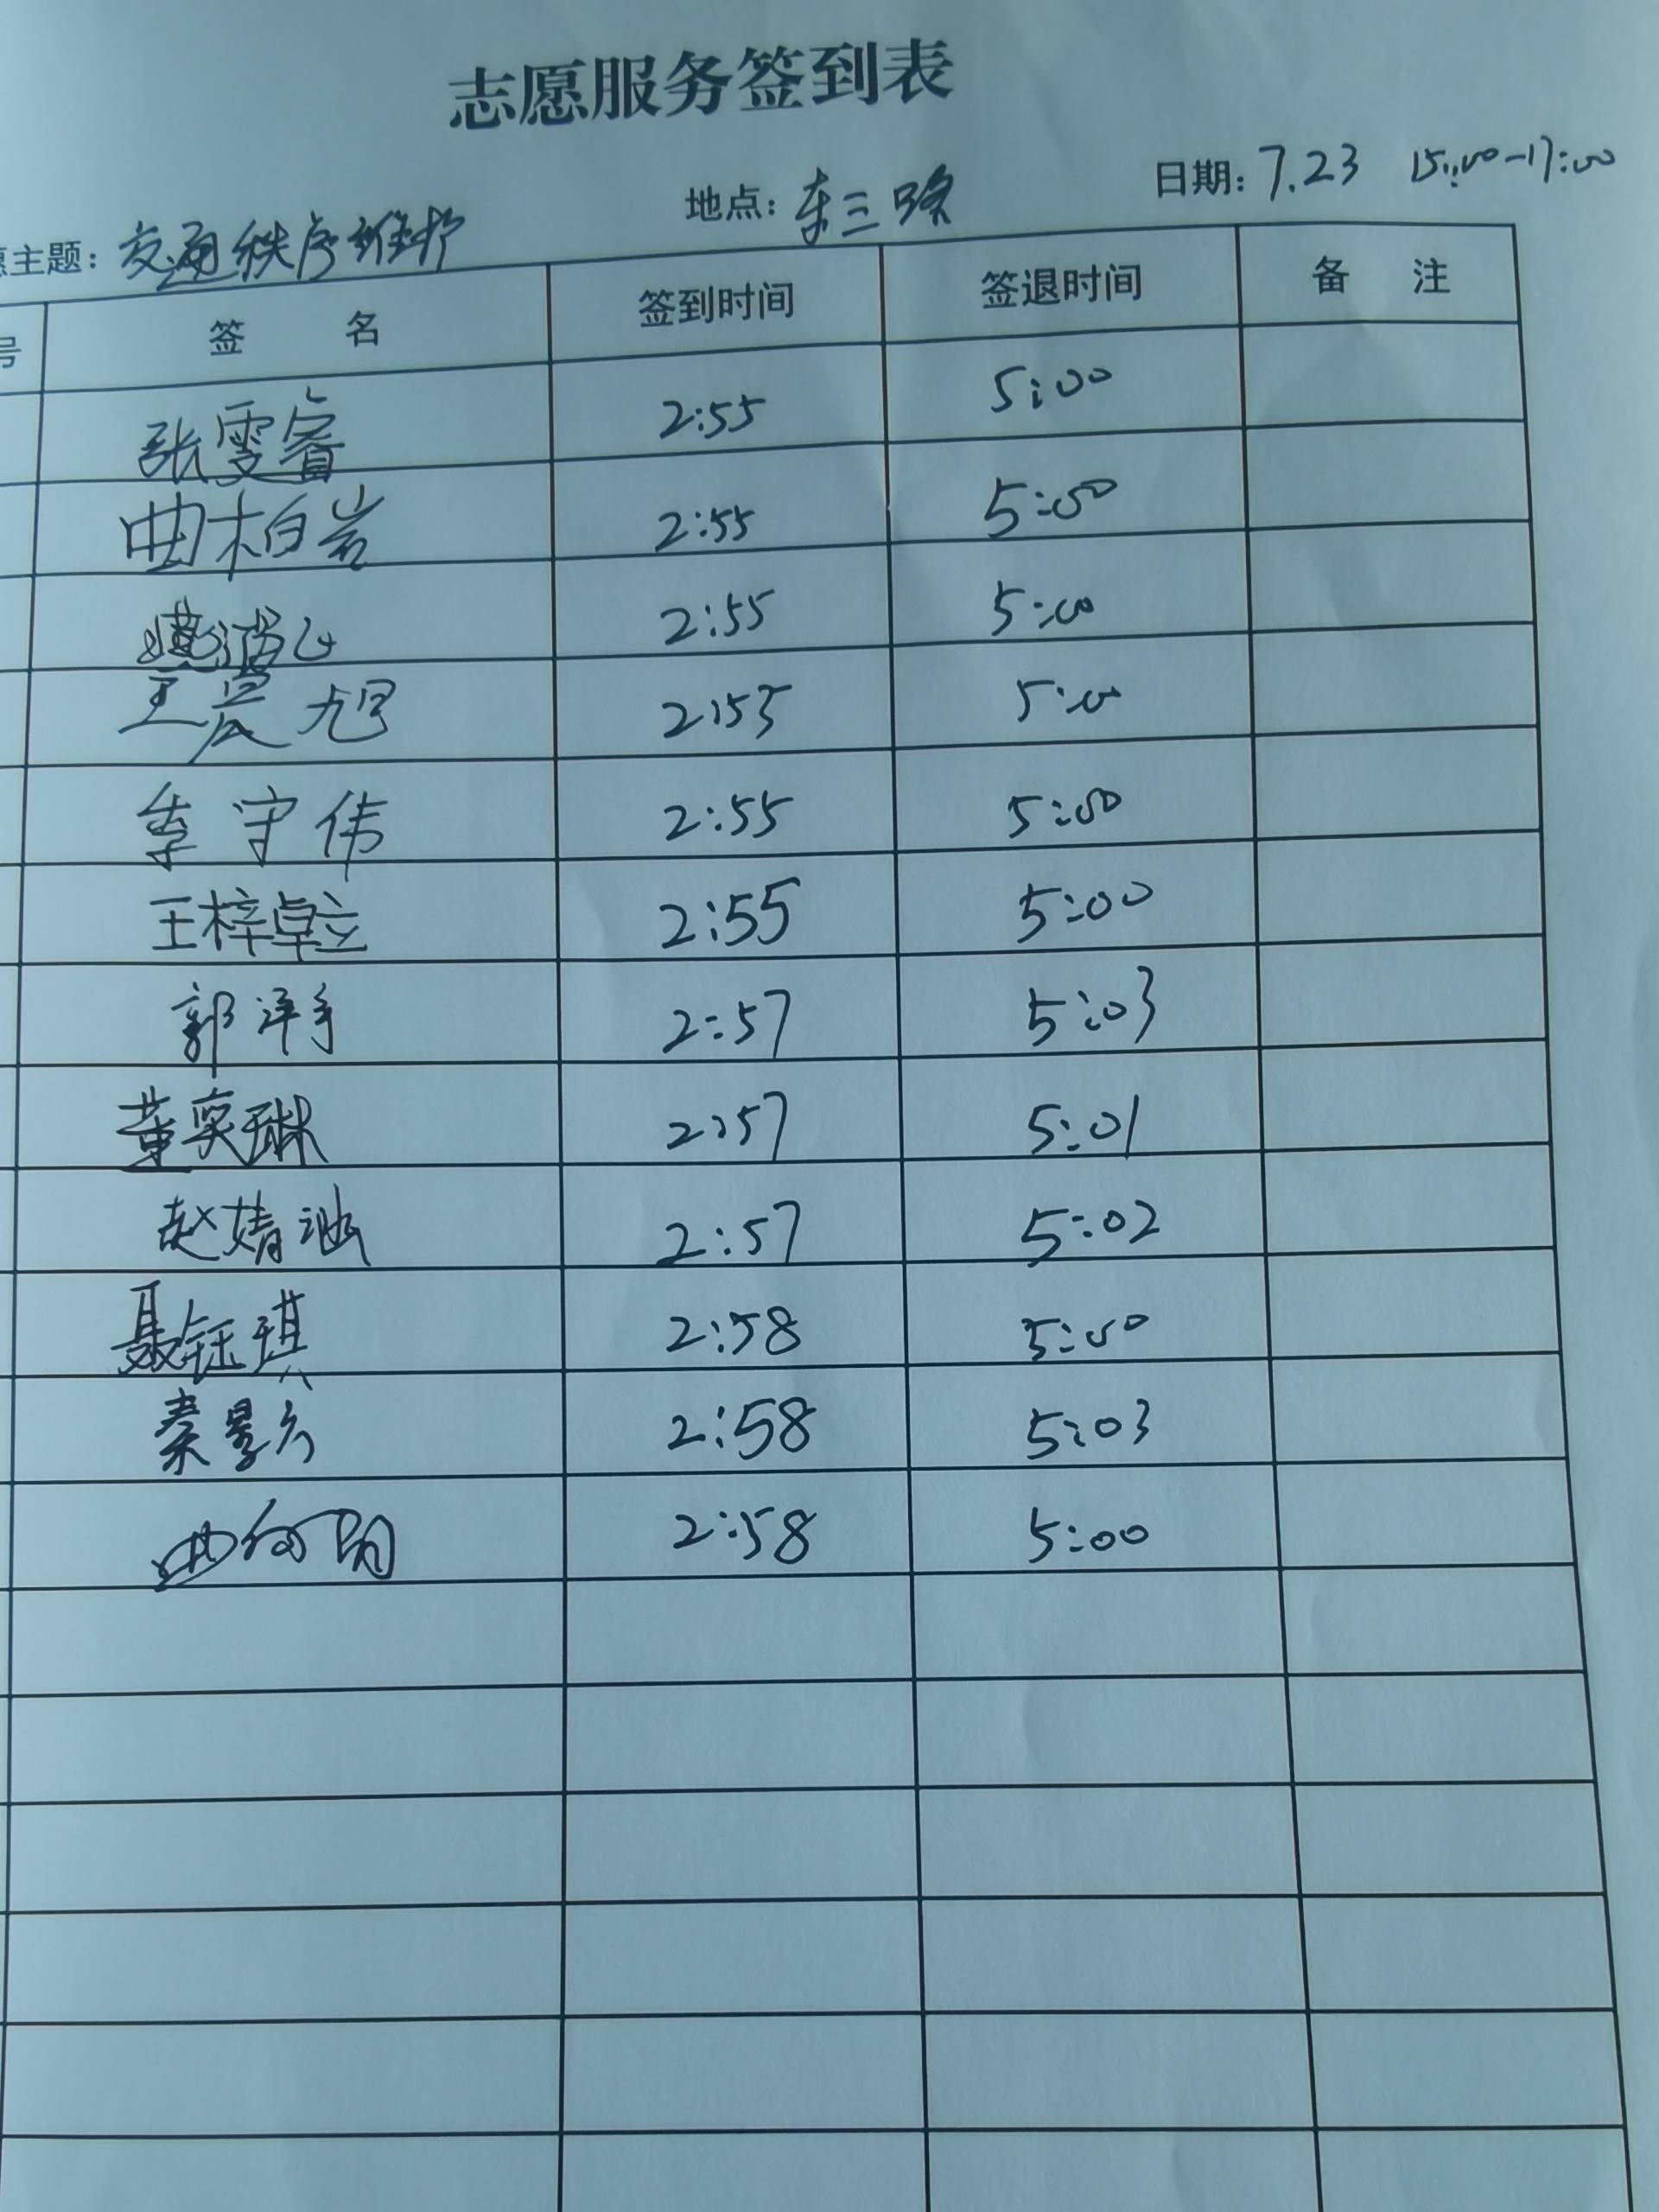 志愿服务签到表
主题: 交通秩序维护 地点: 东三路 日期: 7.23 15:00-17:00
号 签 名 签到时间 签退时间 备 注
张雯睿 2:55 5:00
曲柏岩 2:55 5:00
2:55 5:00
王晨旭 2:53 5:00
李守伟 2:55 5:00
王梓卓立 2:55 5:00
郭洋 2:57 5:03
董奕琳 2:57 5:01
赵婧涵 2:57 5:02
聂钰琪 2:58 5:00
秦 2:58 5:03
曲 2:58 5:00